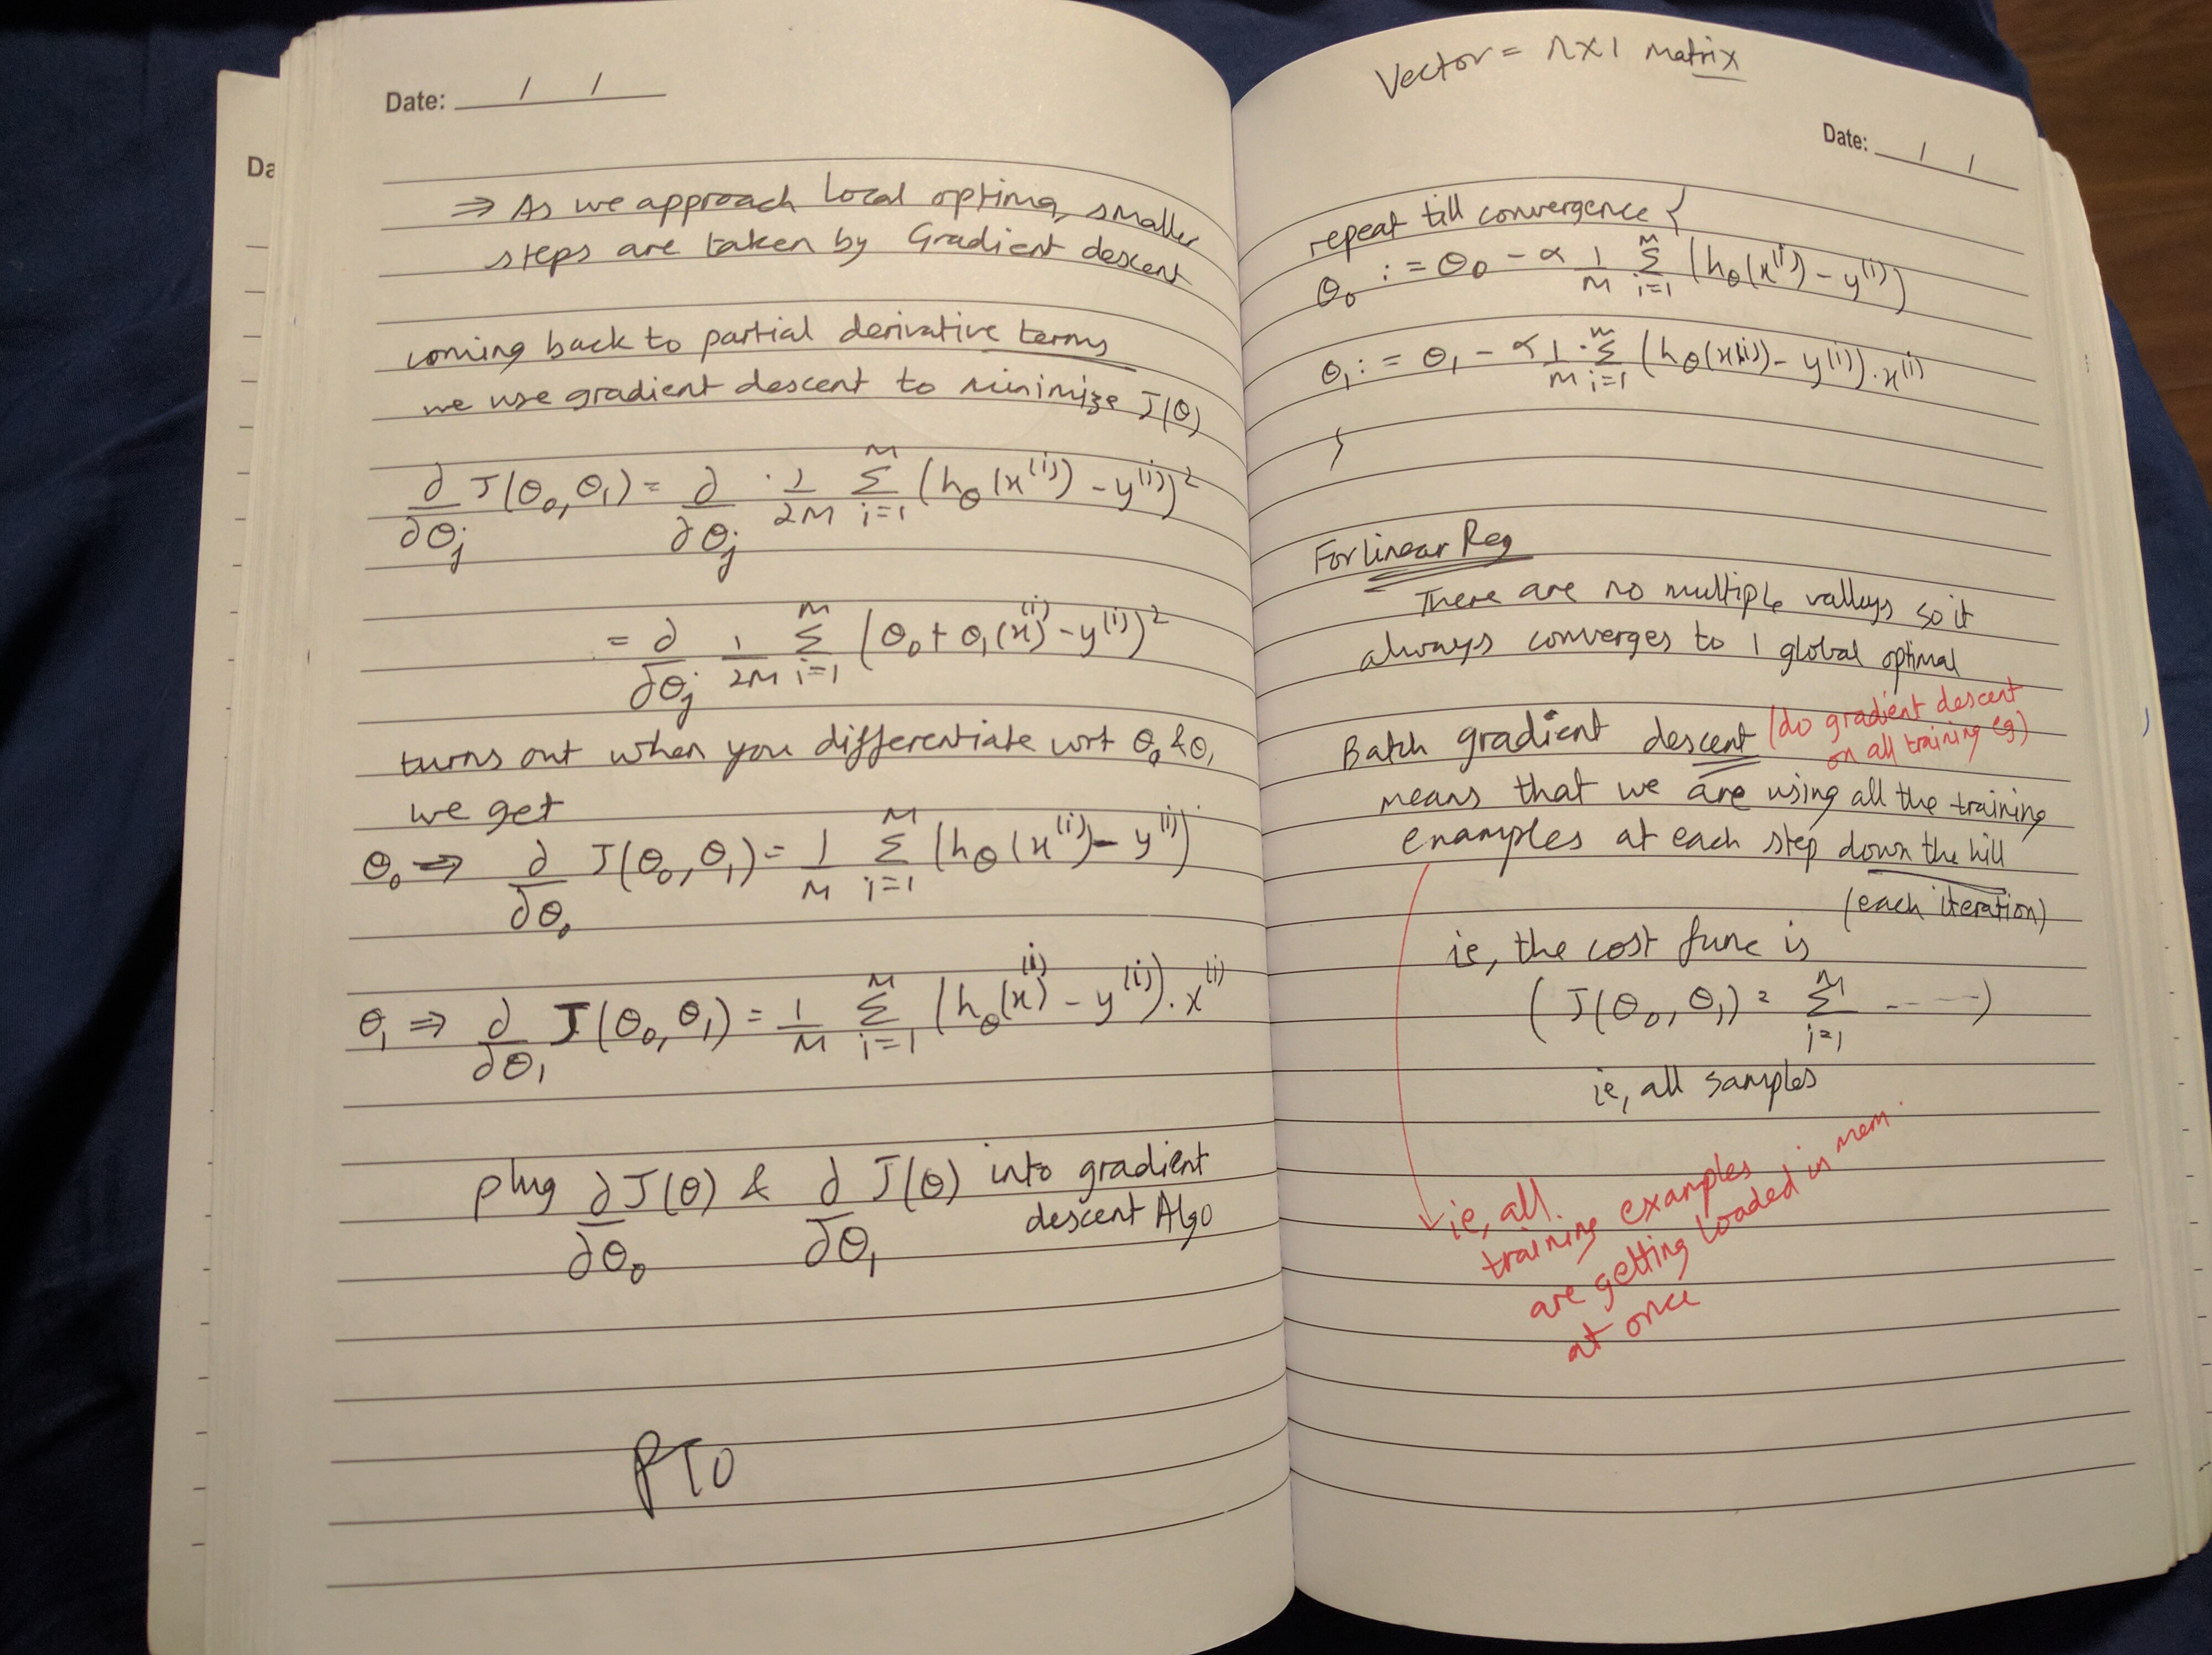 Date: / /
Da
⇒ As we approach local optima, smaller
steps are taken by Gradient descent
coming back to partial derivative terms
we use gradient descent to minimize J(θ)
∂/∂θj J(θ0, θ1) = ∂/∂θj · 1/2M Σ_{i=1}^{M} (hθ(x^(i)) - y^(i))^2
= ∂/∂θj 1/2M Σ_{i=1}^{M} (θ0 + θ1(x)^(i) - y^(i))^2
turns out when you differentiate wrt θ0 & θ1
we get
θ0 ⇒ ∂/∂θ0 J(θ0, θ1) = 1/M Σ_{i=1}^{M} (hθ(x^(i)) - y^(i))
θ1 ⇒ ∂/∂θ1 J(θ0, θ1) = 1/M Σ_{i=1}^{M} (hθ(x)^(i) - y^(i)) · x^(i)
plug ∂/∂θ0 J(θ) & ∂/∂θ1 J(θ) into gradient
descent Algo
PTO
Vector = n×1 matrix
Date: / /
repeat till convergence {
θ0 := θ0 - α 1/M Σ_{i=1}^{M} (hθ(x^(i)) - y^(i))
θ1 := θ1 - α 1/M · Σ_{i=1}^{m} (hθ(x^(i)) - y^(i)) · x^(i)
}
For linear Reg
There are no multiple valleys so it
always converges to 1 global optimal
Batch gradient descent (do gradient descent
on all training eg)
means that we are using all the training
examples at each step down the hill
(each iteration)
ie, the cost func is
( J(θ0, θ1) = Σ_{i=1}^{M} ----- )
ie, all samples
ie, all
training examples
are getting loaded in mem.
at once